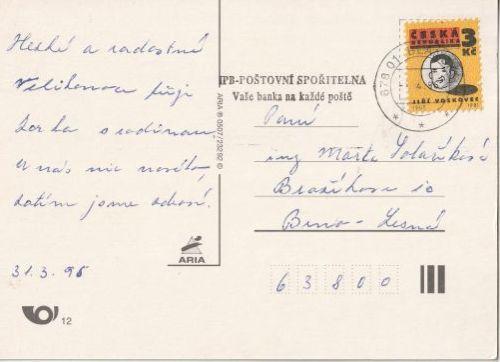 Hezké a radostné
Velikonoce přeji
s rodinou
u nás nic nového
zatím jsme zdraví.
31.3.96
12
ARIA ® 0507/232 92 ©
ARIA
IPB-POŠTOVNÍ SPOŘITELNA
Vaše banka na každé poště
678 01
ČESKÁ
REPUBLIKA
3
Kč
JIŘÍ VOSKOVEC
1905 1981
Paní
ing Marta
Brno - Lesná
63800